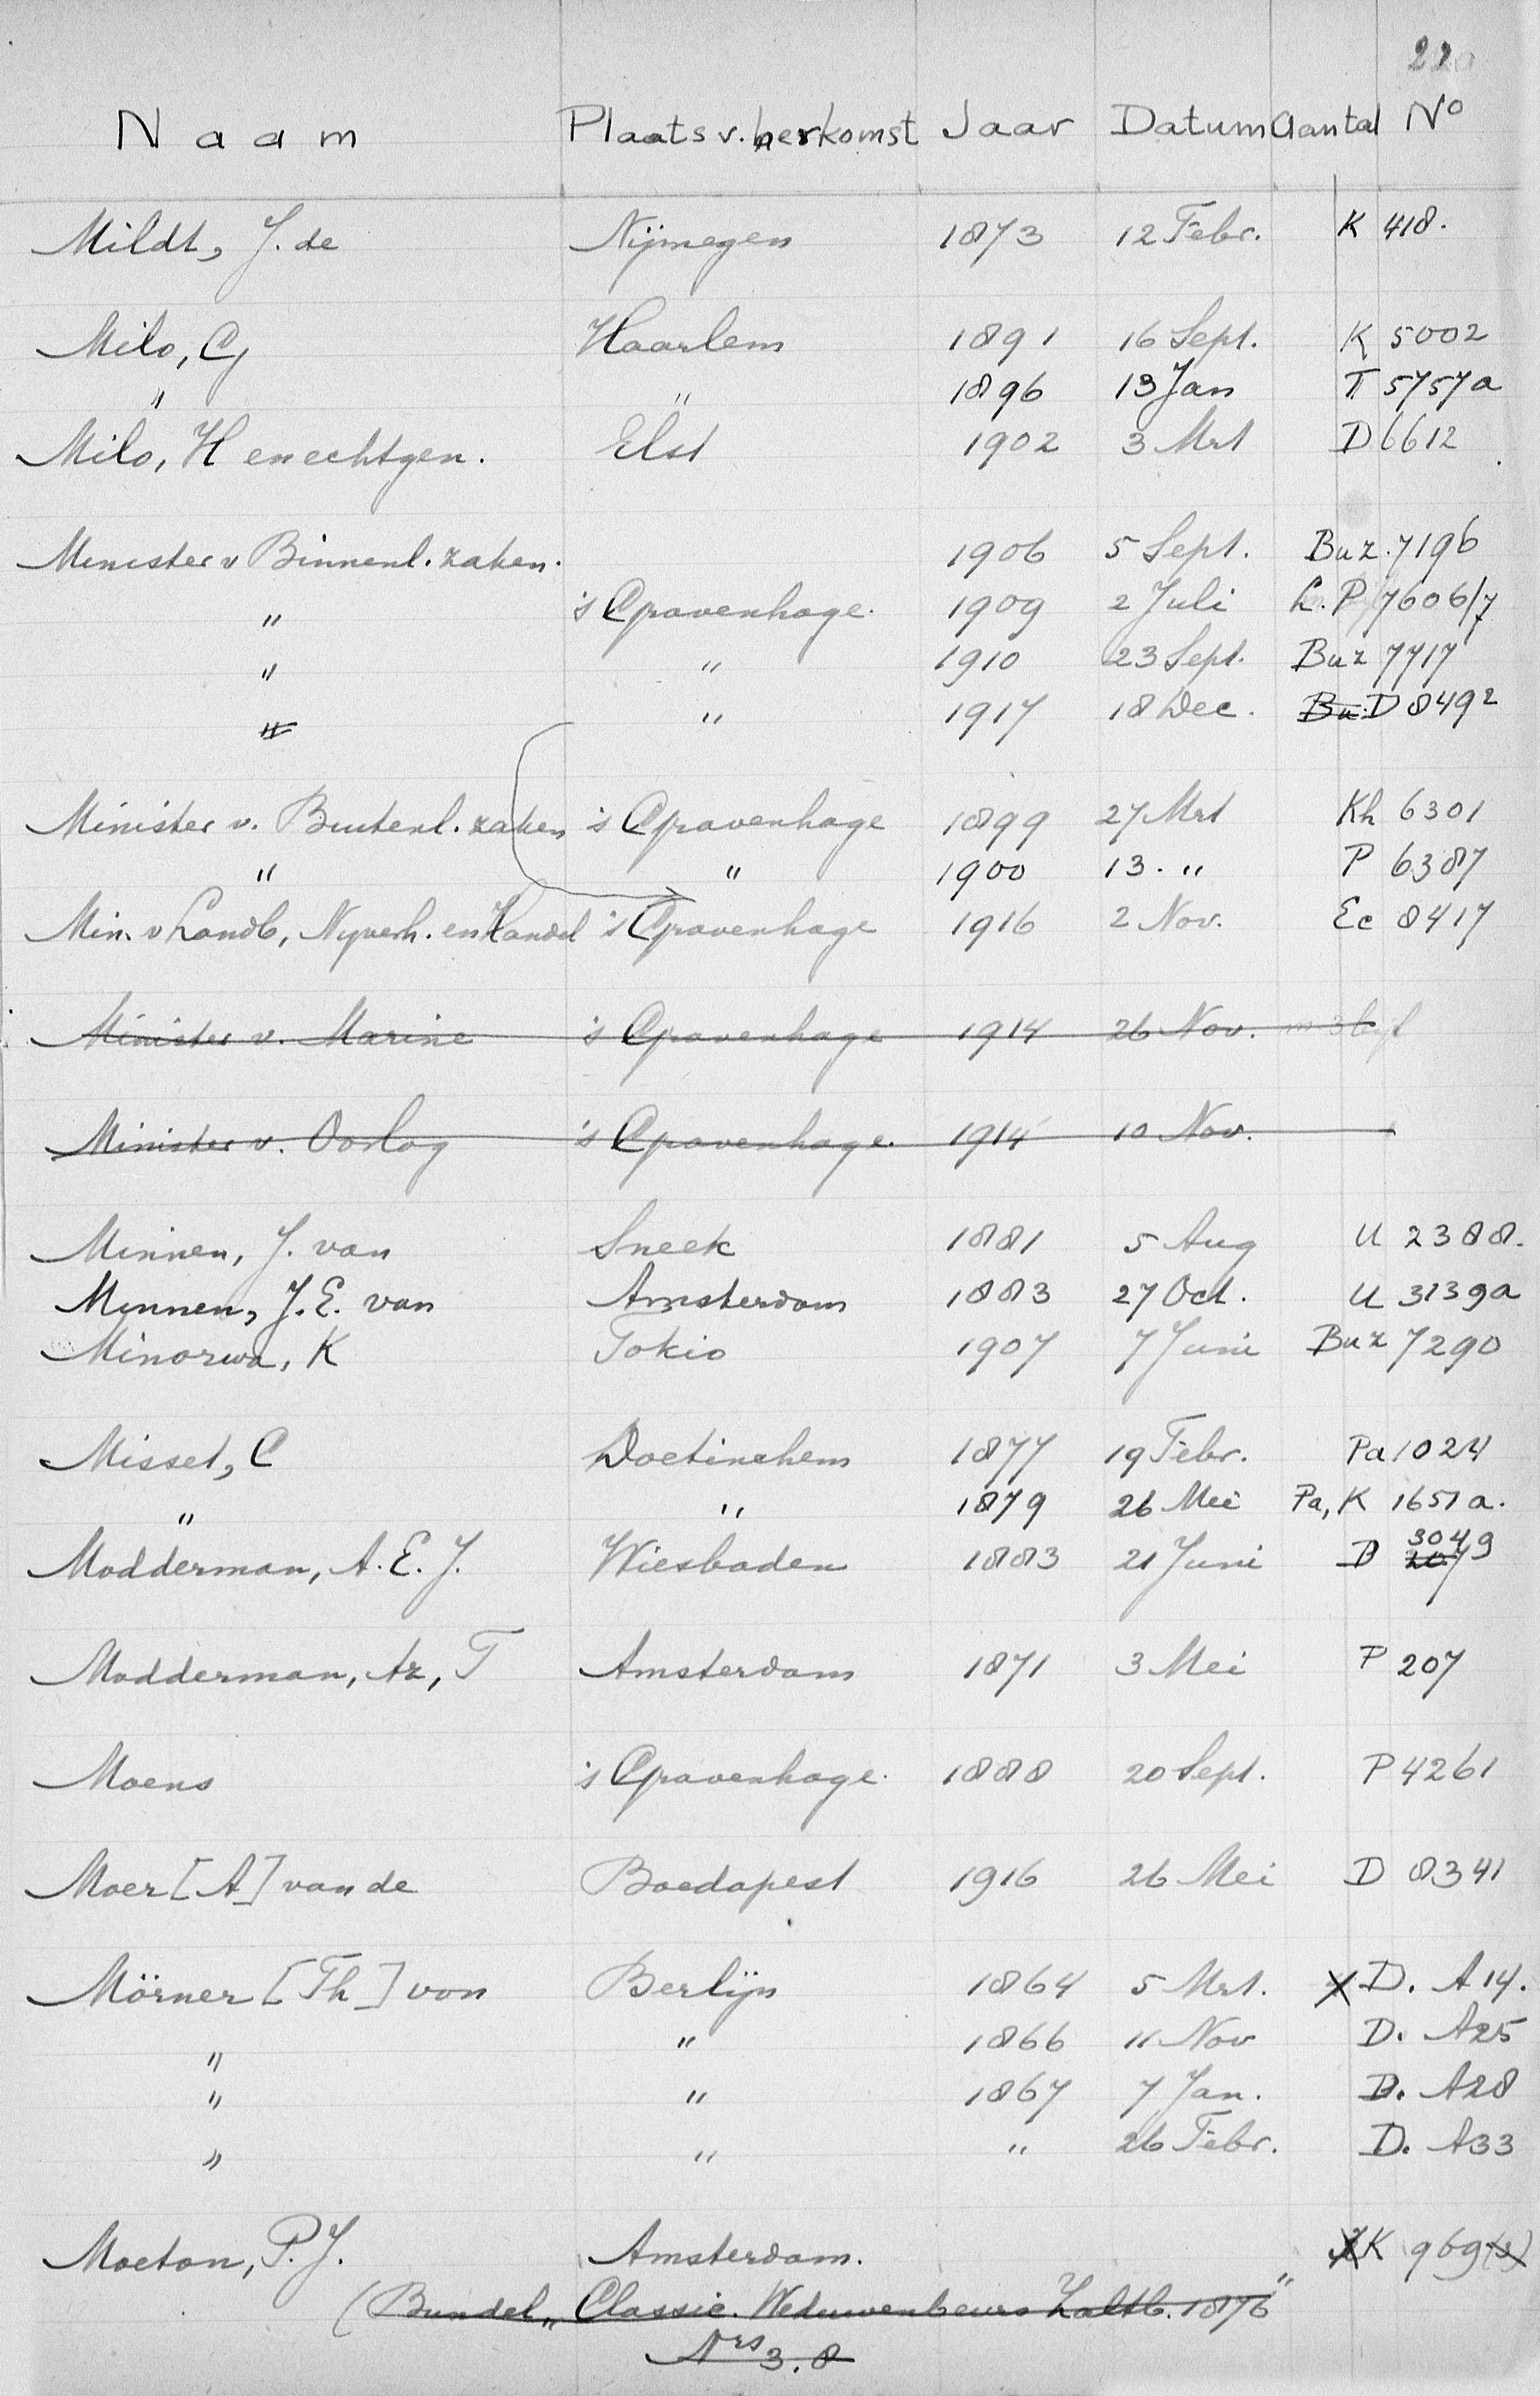 22
Naam Plaats v. herkomst Jaar Datum Aantal No
Mildt, J. de Nijmegen 1873 12 Febr. K 418.
Milo, G Haarlem 1891 16 Sept. K 5002
" " 1896 13 Jan T 5757a
Milo, H en echtgen. Elst 1902 3 Mrt D 6612
Minister v Binnenl. zaken. 1906 5 Sept. Buz. 7196
" 's Gravenhage. 1909 2 Juli L. P 7606/7
" " 1910 23 Sept. Buz 7717
" " 1917 18 Dec. Bu. D 8492
Minister v. Buitenl. zaken 's Gravenhage 1899 27 Mrt Kh 6301
" " 1900 13. " P 6387
Min. v Landb, Nyverh. en Handel 's Gravenhage 1916 2 Nov. Ec 8417
Minister v. Marine 's Gravenhage 1914 26 Nov.
Minister v. Oorlog 's Gravenhage. 1914 10 Nov.
Minnen, J. van Sneek 1881 5 Aug U 2388.
Minnen, J. E. van Amsterdam 1883 27 Oct. U 3139a
Minorwa, K Tokio 1907 7 Juni Buz 7290
Misset, C Doetinchem 1877 19 Febr. Pa 1024
" " 1879 26 Mei Pa, K 1651a.
Modderman, A. E. J. Wiesbaden 1883 21 Juni D 3049
Modderman, Az, T Amsterdam 1871 3 Mei P 207
Moens 's Gravenhage. 1888 20 Sept. P 4261
Moer [A] van de Boedapest 1916 26 Mei D 8341
Mörner [Th] von Berlijn 1864 5 Mrt. D. A14.
" " 1866 11 Nov D. A25
" " 1867 7 Jan. D. A28
" " " 26 Febr. D. A33
Moeton, P. J. Amsterdam. K 969
(Bundel „Classic. Weduwenbeurs Zaltb. 1876"
Nrs 3. 8